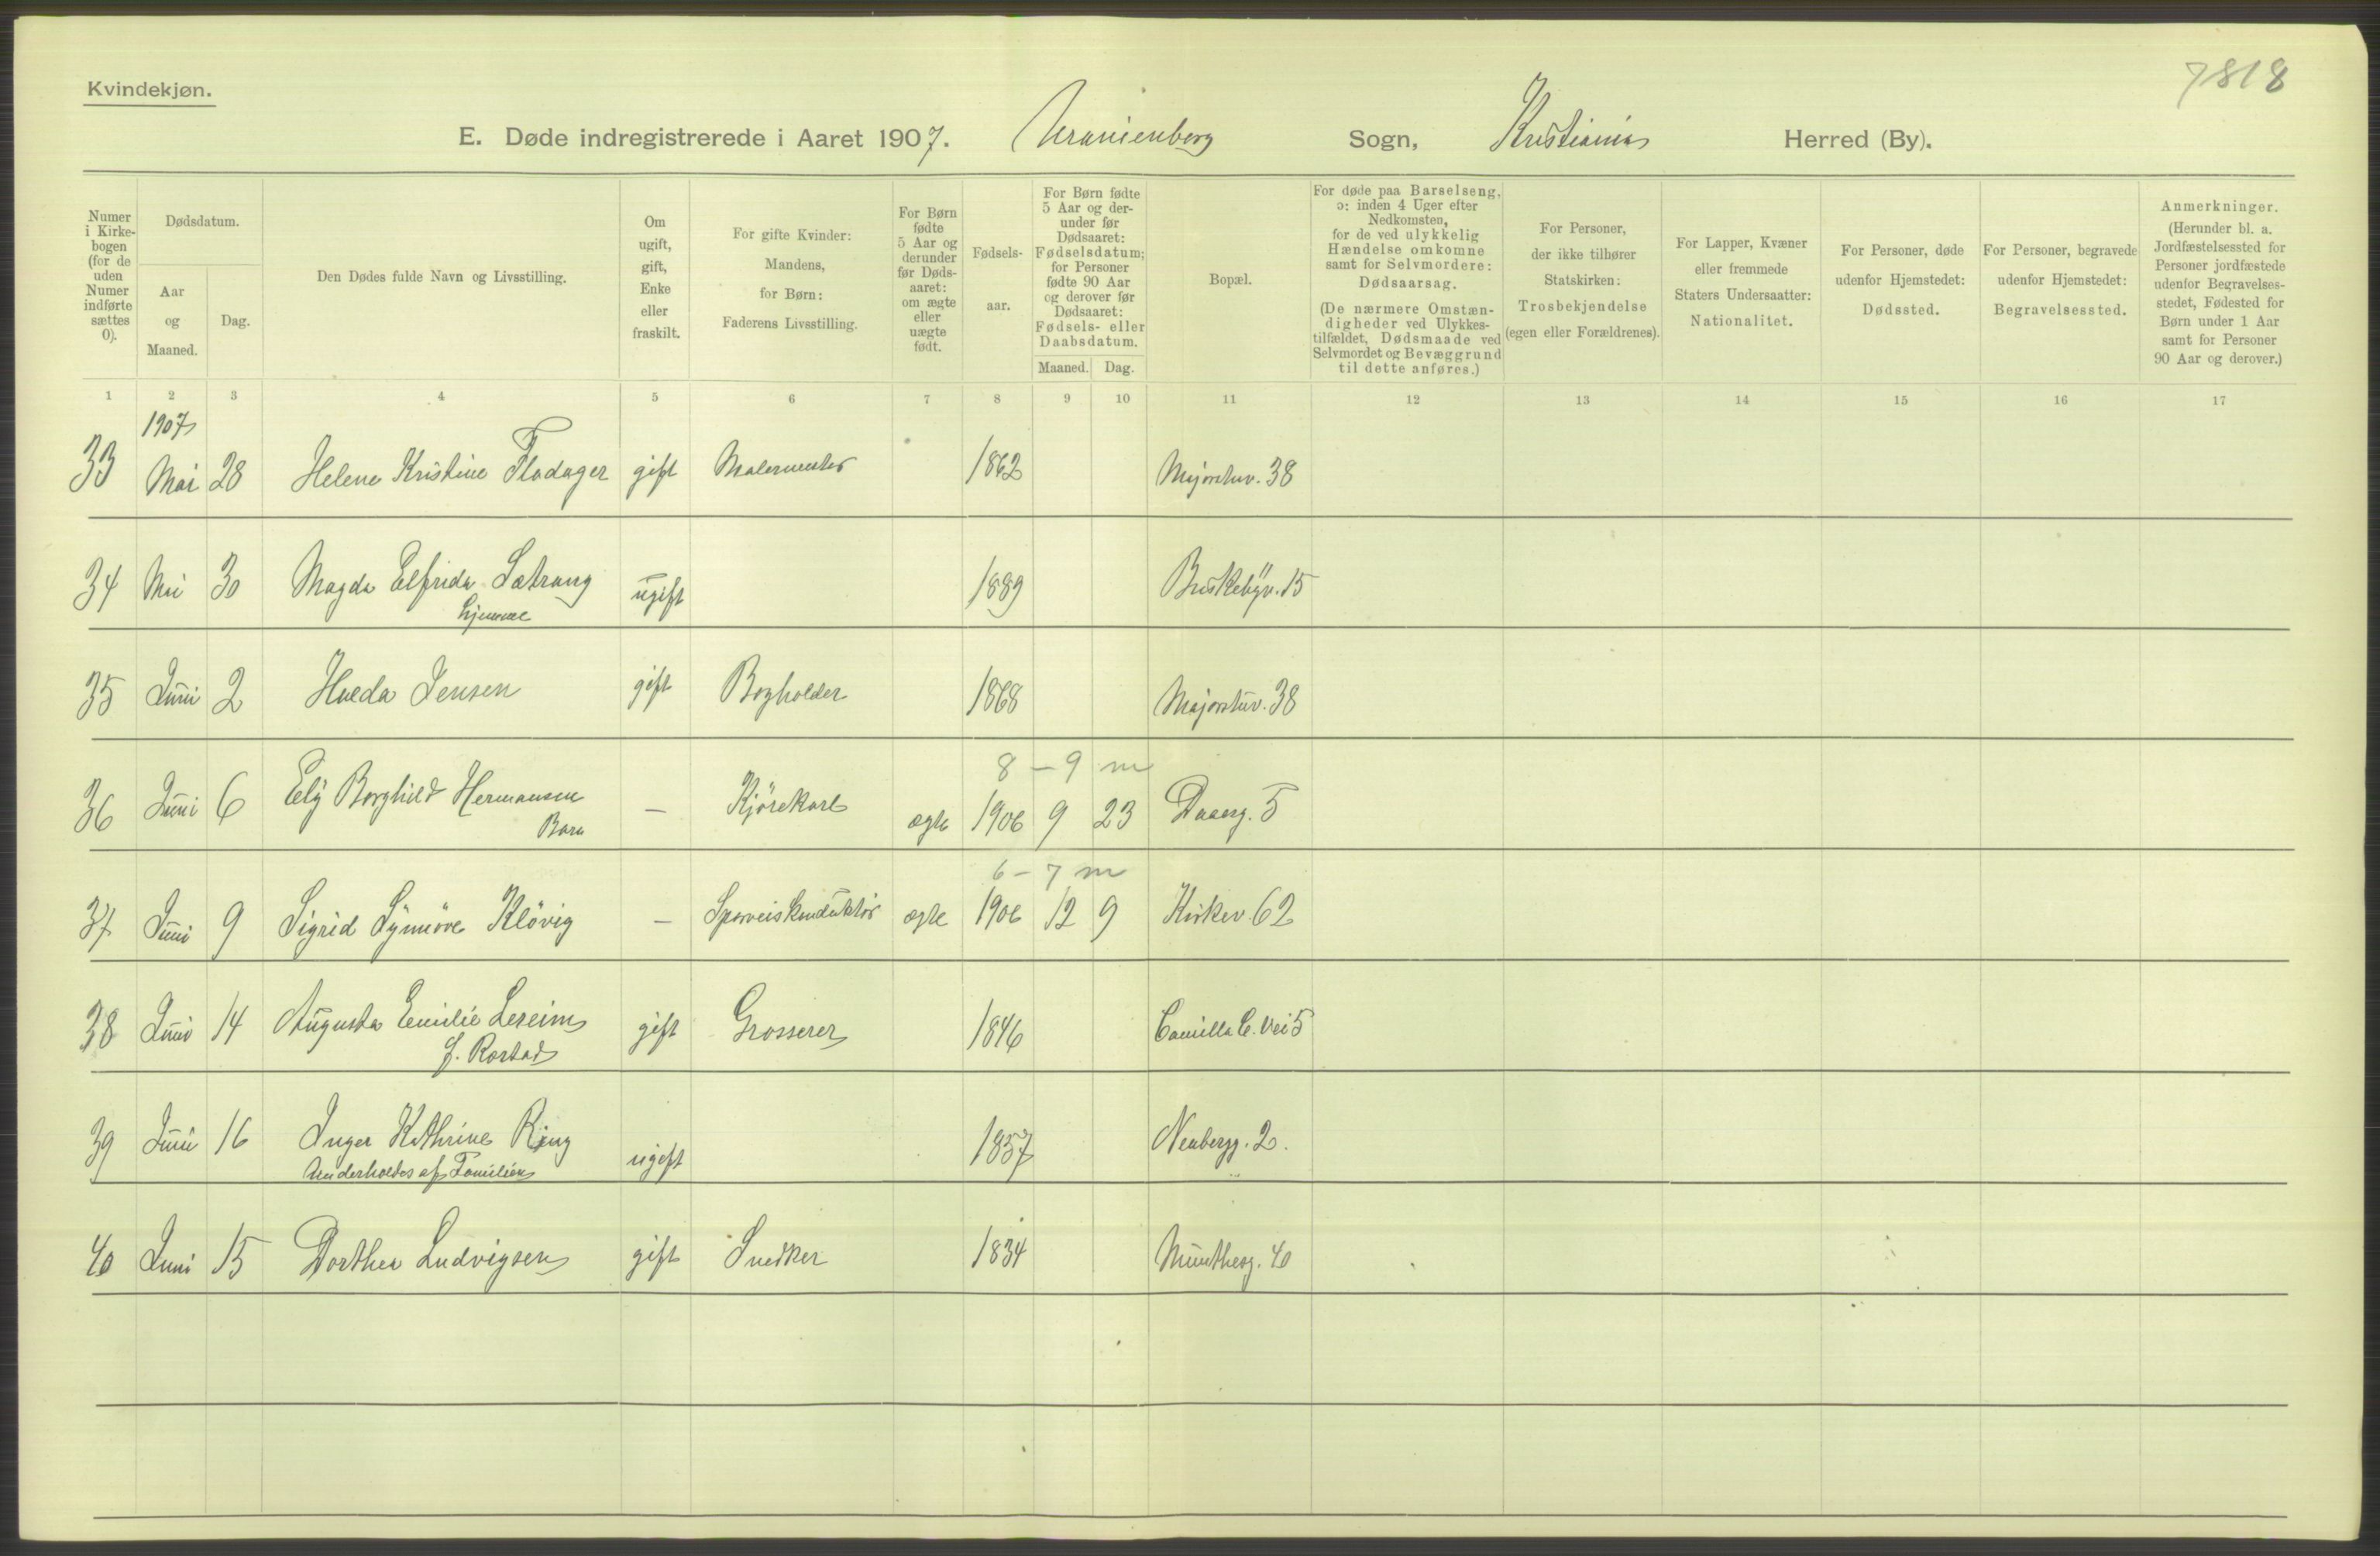 Kvindekjøn.
7818
E. Døde indregistrerede i Aaret 1907. Uranienborg Sogn, Kristiania Herred (By).
Numer i Kirkebogen (for de uden Numer indførte sættes 0).
Dødsdatum.
Aar og Maaned.
Dag.
Den Dødes fulde Navn og Livsstilling.
Om ugift, gift, Enke eller fraskilt.
For gifte Kvinder: Mandens, for Børn: Faderens Livsstilling.
For Børn fødte 5 Aar og derunder før Dødsaaret: om ægte eller uægte født.
Fødselsaar.
For Børn fødte 5 Aar og derunder før Dødsaaret: Fødselsdatum; for Personer fødte 90 Aar og derover før Dødsaaret: Fødsels- eller Daabsdatum.
Maaned. Dag.
Bopæl.
For døde paa Barselseng, ɔ: inden 4 Uger efter Nedkomsten, for de ved ulykkelig Hændelse omkomne samt for Selvmordere: Dødsaarsag.
(De nærmere Omstændigheder ved Ulykkestilfældet, Dødsmaade ved Selvmordet og Bevæggrund til dette anføres.)
For Personer, der ikke tilhører Statskirken: Trosbekjendelse (egen eller Forældrenes).
For Lapper, Kvæner eller fremmede Staters Undersaatter: Nationalitet.
For Personer, døde udenfor Hjemstedet: Dødssted.
For Personer, begravede udenfor Hjemstedet: Begravelsessted.
Anmerkninger. (Herunder bl. a. Jordfæstelsessted for Personer jordfæstede udenfor Begravelsesstedet, Fødested for Børn under 1 Aar samt for Personer 90 Aar og derover.)
1 2 3 4 5 6 7 8 9 10 11 12 13 14 15 16 17
1907
33 Mai 28 Helene Kristine Fladager gift Malermester 1862 Majorstuv. 38
34 Mai 30 Magda Elfrida Sætrang ugift 1889 Briskebyv. 15
hjemme
35 Juni 2 Hulda Jensen gift Bogholder 1868 Majorstuv. 38
8 - 9 m
36 Juni 6 Ely Borghild Hermansen — Kjørekarl ægte 1906 9 23 Daaeg. 5
Barn
6 - 7 m
37 Juni 9 Sigrid Synnöve Klövig — Sporveiskonduktör ægte 1906 12 9 Kirkev. 62
38 Juni 14 Augusta Emilie Lereim gift Grosserer 1846 Camilla C. Vei 5
f. Rostad
39 Juni 16 Inger Kathrine Ring ugift 1857 Neubergg. 2.
Underholdes af Familien
40 Juni 15 Dorthea Ludvigsen gift Snedker 1834 Munthesg. 40